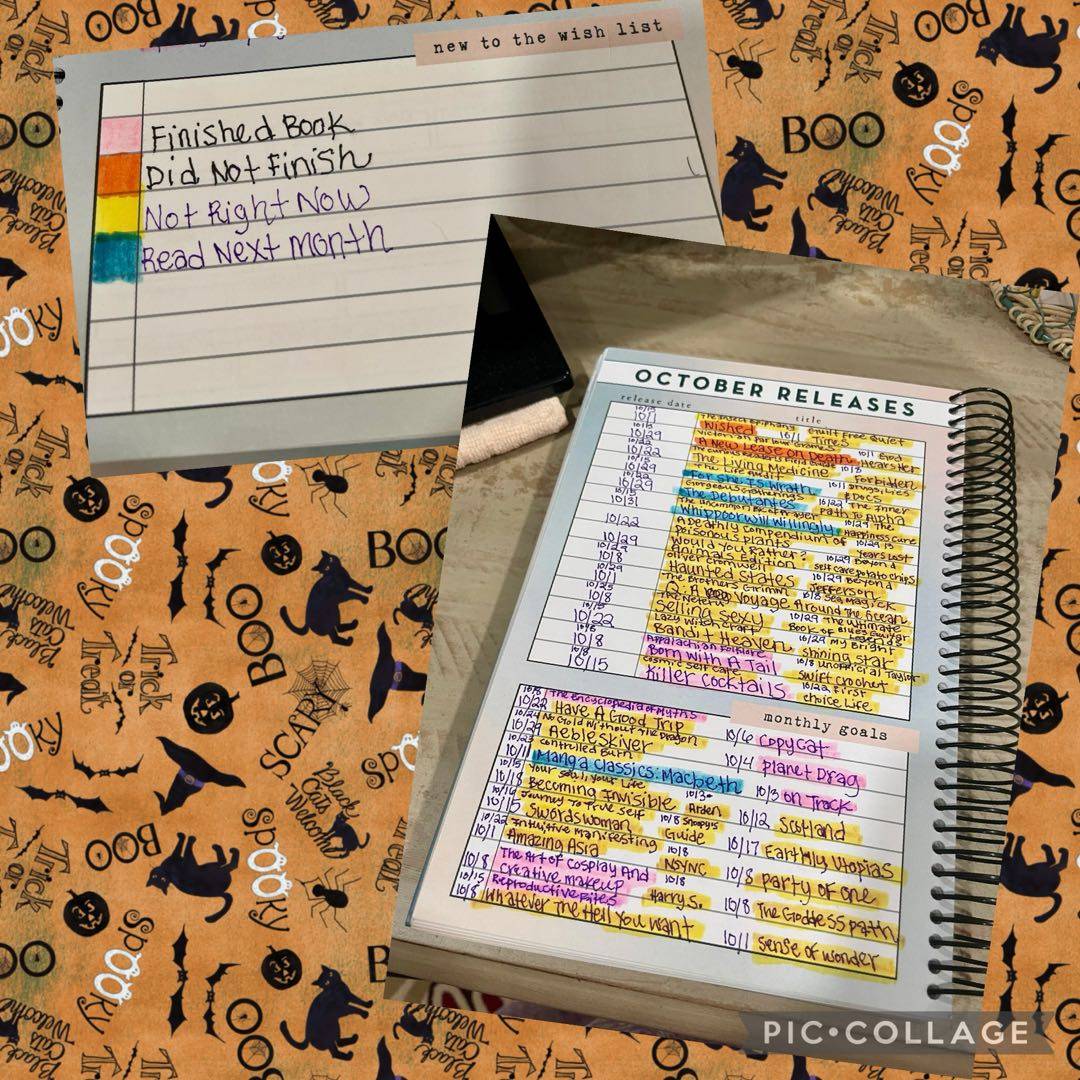 new to the wish list
Finished Book
Did Not Finish
Not Right Now
Read Next Month
OCTOBER RELEASES
release date title
10/1
Wished 10/1 Times
10/29
10/22 A New Lease on Death 10/1 God
Hears Her
The Living Medicine 10/8
10/29 Forbidden
For She Is Wrath 10/11 Drugs, Lies
10/29 Gorgeous Gatherings & DOCS
The Debutantes 10/22 The Inner
10/31 Path To Alpha
Whippoorwill Willingly 10/29 The
Happiness Cure
10/22 A Deathly Compendium of
Poisonous Plants 10/29 15
10/29 Would You Rather? Years Lost
10/29 Animals Edition 10/29 Beyond
10/8 Oliver Cromwell self care potato chips
10/29 Haunted States 10/29 Beyond
10/1 The Brothers Grimm Jefferson
A Voyage Around the Ocean 10/8 Sea Magick
10/8 The Nefertu
Selling Sexy 10/29 The Ultimate
10/22 Lazy Witch Craft Book of Blues Guitar Legends
Bandit Heaven 10/29 My Bright
10/8 Appalachian Folklore shining star
10/8 Born With A Tail 10/8 unofficial Taylor
10/15 Cosmic Self Care Swift Crochet
Killer Cocktails 10/22 First
choice Life
monthly goals
10/8 The Encyclopedia of Myths
10/22 Have A Good Trip 10/6 Copycat
No Gold Without The Dragon
10/29 Aebleskiver 10/4 Planet Drag
Controlled Burn
10/1 Manga Classics: Macbeth 10/3 On Track
10/15 Your Soul, Your Life
10/18 Becoming Invisible 10/3 Arden 10/12 Scotland
Journey To True Self 10/8 Snoopy's
10/15 Swordswoman Guide 10/17 Earthly Utopias
10/22 Intuitive Manifesting 10/8
10/1 Amazing Asia NSYNC 10/8 Party of One
10/8 The Art of Cosplay And
Creative Makeup 10/8
10/15 Reproductive Rites Harry S. 10/8 The Goddess Path
10/8 Whatever The Hell You Want
10/1 Sense of Wonder
Trick or Treat
BOO
Spooky
Black Cats Welcome
SCARY
PIC•COLLAGE